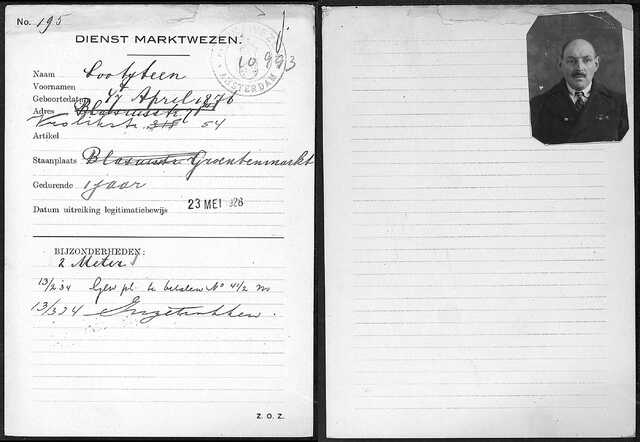 No. 195
DIENST MARKTWEZEN.
AMSTERDAM
10993
Naam Lootsteen
Voornamen
Geboortedatum 17 April 1876
Adres Blasiusstr
Vrolikstr. 318 54
Artikel
Staanplaats Blasiusstr Groentenmarkt
Gedurende 1 jaar
Datum uitreiking legitimatiebewijs 23 MEI 1928
BIJZONDERHEDEN:
2 Meter
13/2 34 Gew pl. te betalen No 41/2 m
13/3 34 Ingetrokken.
Z. O. Z.